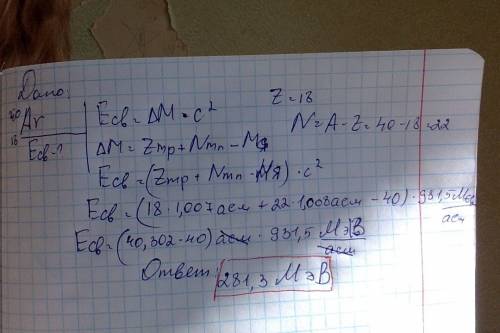 Дано:
⁴⁰₁₈Ar
Eсв-?
Eсв=ΔM·c²
ΔM=Zmp+Nmn-Mя
Eсв=(Zmp+Nmn-Mя)·c²
Z=18
N=A-Z=40-18=22
Eсв=(18·1,007аем+22·1,008аем-40)·931,5МэВ/аем
Eсв=(40,302-40)аем·931,5 МэВ/аем
Ответ: 281,3 МэВ